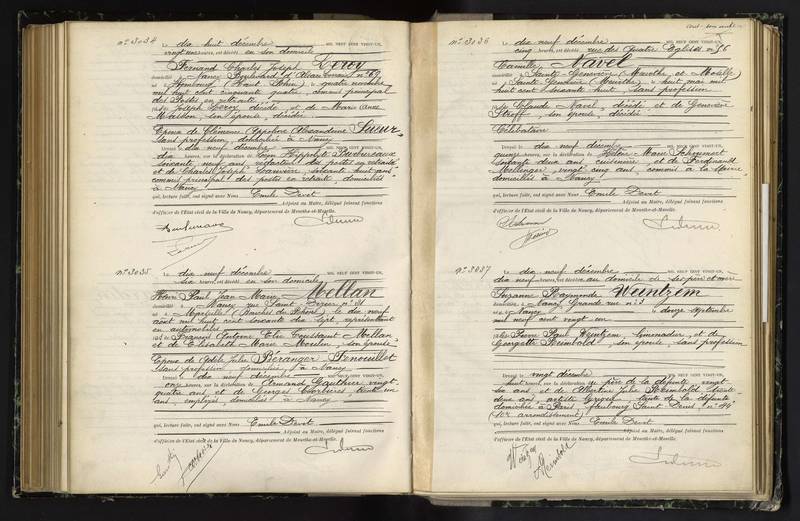 N° 3034
Le dix huit décembre MIL NEUF CENT VINGT-UN,
vingt une heures, est décédé en son domicile
Fernand Charles Joseph Leroy
domicilié à Nancy, Boulevard d'Alsace Lorraine n° 69
né à Hombourg (Haut Rhin) le quatre novembre
mil huit cent cinquante quatre, commis principal
des Postes en retraite
fils de Joseph Leroy décédé et de Marie Anne
Masson, son épouse, décédée
Epoux de Clémence Alexandrine Sueur
sans profession, domiciliée à Nancy
Dressé le dix neuf décembre MIL NEUF CENT VINGT-UN,
dix heures, sur la déclaration de Hippolyte
soixante neuf ans, des postes en retraite
et de Charles Joseph soixante huit ans
commis principal des postes en retraite, domiciliés
à Nancy
qui, lecture faite, ont signé avec Nous Emile Devot
Adjoint au Maire, délégué faisant fonctions
d'officier de l'Etat civil de la Ville de Nancy, département de Meurthe-et-Moselle.
N° 3035
Le dix neuf décembre MIL NEUF CENT VINGT-UN,
six heures, est décédé en son domicile
Henri Paul Jean Marie Mellan
domicilié à Nancy rue Saint Dizier n°
né à Marseille (Bouches du Rhône) le dix neuf
août mil huit cent soixante dix sept, représentant
en automobiles
fils de François Antoine Elie Toussaint Mellan
et de Elisabeth Marie Moulin, son épouse
Epoux de Julie Béranger Fenouillet
sans profession, domiciliée à Nancy
Dressé le dix neuf décembre MIL NEUF CENT VINGT-UN,
onze heures, sur la déclaration de Armand Gauthier, vingt
quatre ans et de Georges trente un
ans, employés, domiciliés à Nancy
qui, lecture faite, ont signé avec Nous Emile Devot
Adjoint au Maire, délégué faisant fonctions
d'officier de l'Etat civil de la Ville de Nancy, département de Meurthe-et-Moselle.
N° 3036
Le dix neuf décembre MIL NEUF CENT VINGT-UN,
cinq heures, est décédée rue des Quatre Eglises n° 56
Camille Navel
domiciliée à Sainte Geneviève (Meurthe et Moselle)
née à Sainte Geneviève (Meurthe) le huit mai mil
huit cent soixante huit, sans profession
fille de Claudien Navel, décédé et de Geneviève
son épouse, décédée
Célibataire
Dressé le dix neuf décembre MIL NEUF CENT VINGT-UN,
quinze heures, sur la déclaration de Hélène Marie
soixante deux ans, cuisinière et de Ferdinand
vingt cinq ans, commis à la Mairie
domiciliés à Nancy
qui, lecture faite, ont signé avec Nous Emile Devot
Adjoint au Maire, délégué faisant fonctions
d'officier de l'Etat civil de la Ville de Nancy, département de Meurthe-et-Moselle.
N° 3037
Le dix neuf décembre MIL NEUF CENT VINGT-UN,
dix neuf heures, est décédée au domicile de ses père et mère
Suzanne Raymonde Weintzem
domiciliée à Nancy Grande rue n°
née à Nancy le douze septembre
mil neuf cent vingt un
fille de Pierre Paul Weintzem, limonadier, et de
Georgette Reimbold, son épouse, sans profession
Dressé le vingt décembre MIL NEUF CENT VINGT-UN,
huit heures, sur la déclaration du père de la défunte, vingt
six ans et de Julie Reimbold trente
deux ans, artiste lyrique, tante de la défunte
domiciliée à Paris, faubourg Saint Denis, n° 44
(10e arrondissement)
qui, lecture faite, ont signé avec Nous Emile Devot
Adjoint au Maire, délégué faisant fonctions
d'officier de l'Etat civil de la Ville de Nancy, département de Meurthe-et-Moselle.
Reimbold